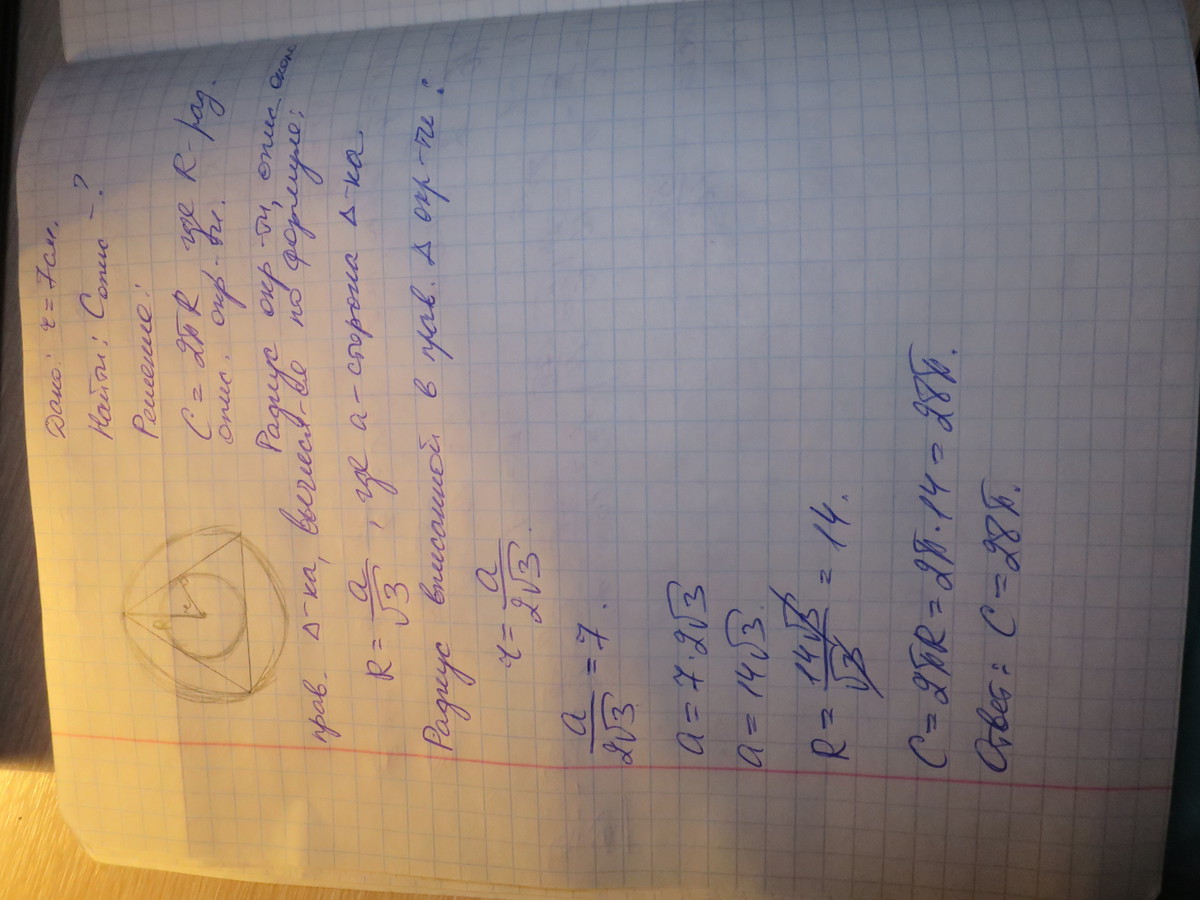 Дано: r = 7 см.
Найти: Cопис - ?
Решение:
C = 2πR где R - рад.
опис. окр-ти.
Радиус окр-ти, опис. около
прав. Δ-ка, вычисл-ся по формуле:
R = a/√3, где a - сторона Δ-ка
Радиус вписанной в прав. Δ окр-ти:
r = a/2√3.
a/2√3 = 7.
a = 7·2√3
a = 14√3.
R = 14√3/√3 = 14.
C = 2πR = 2π·14 = 28π.
Ответ: C = 28π.
R
r